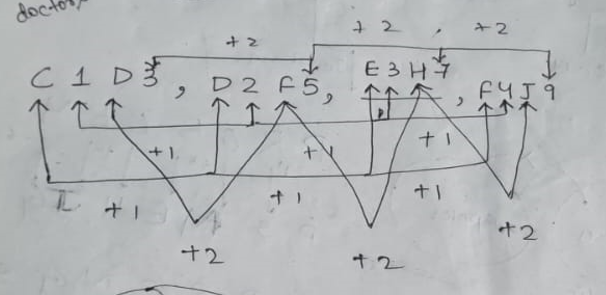 doctor,
+2 +2 , +2
C 1 D 3 , D 2 F 5 , E 3 H 7 , F 4 J 9
+1 +1 +1
+1 +1 +1
+2 +2 +2